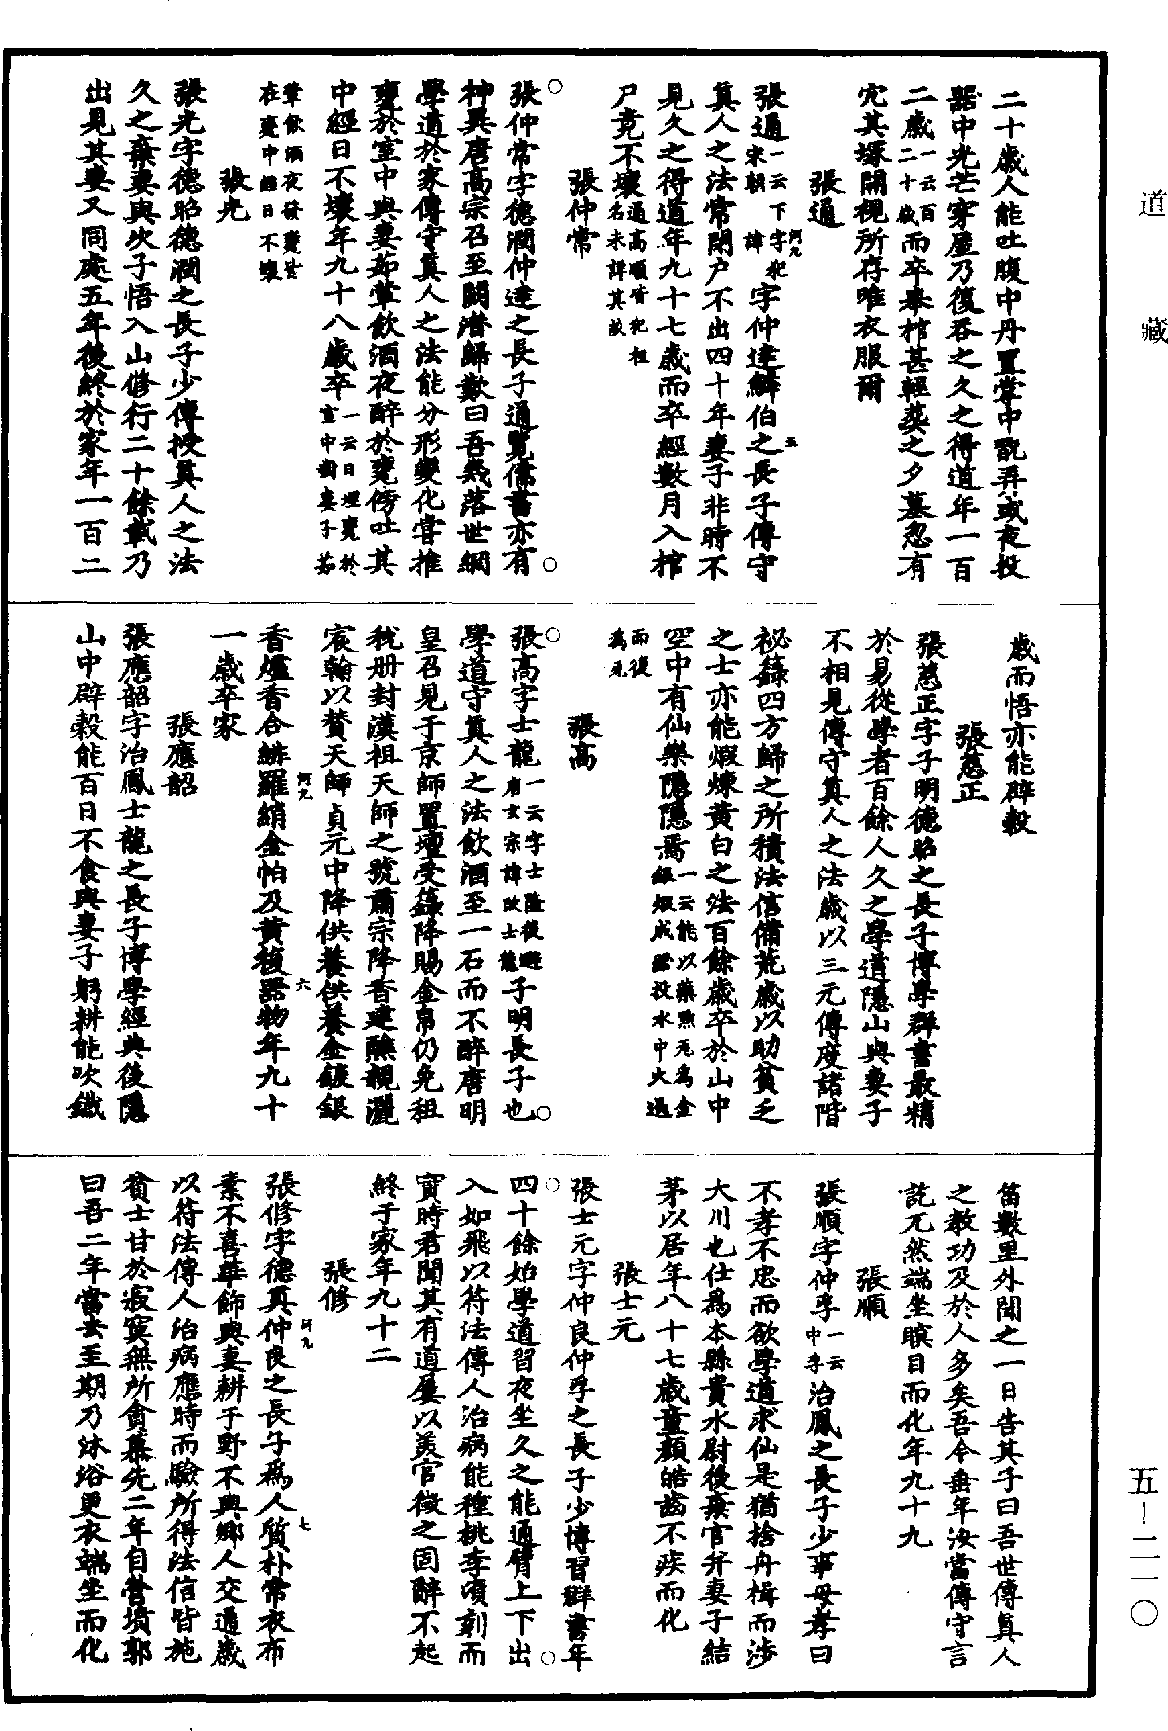 道藏
二十歲人能吐腹中丹置掌中翫弄或夜投
器中光芒穿屋乃復吞之久之得道年一百
二歲一云百二十歲而卒舉棺甚輕葬之夕墓忽有
穴其塚開視所存唯衣服爾
張通
張通一云下字犯宋朝諱字仲達鱗伯之長子傳守
真人之法常閉户不出四十年妻子非時不
見久之得道年九十七歲而卒經數月入棺
尸竟不壞通高順皆犯祖名未詳其故
張仲常
張仲常字德潤仲達之長子通覽儒書亦有
神異唐高宗召至闕潛歸歎曰吾幾落世網
學道於家傳守真人之法能分形變化嘗推
甕於室中與妻茹葷飲酒夜醉於甕傍吐其
中經日不壞年九十八歲卒一云日埋甕於室中與妻子茹
葷飲酒夜發甕皆在甕中經日不壞
張光
張光字德昭德潤之長子少傳授真人之法
久之棄妻與次子悟入山修行二十餘載乃
出見其妻又同處五年後終於家年一百二
歲而悟亦能辟穀
張慈正
張慈正字子明德昭之長子博學群書最精
於易從學者百餘人久之學道隱山與妻子
不相見傳守真人之法歲以三元傳度諸階
祕籙四方歸之所積法信備荒歲以助貧乏
之士亦能煆煉黄白之法百餘歲卒於山中
空中有仙樂隱隱焉一云能以藥點瓦為金銀煆成器投水中火過
而復為瓦
張高
張高字士龍一云字士隆後避唐玄宗諱改士龍子明長子也
學道守真人之法飲酒至一石而不醉唐明
皇召見于京師置壇受籙降賜金帛仍免租
稅册封漢祖天師之號肅宗降香建醮親灑
宸翰以贊天師貞元中降供養供養金鍍銀
香爐香合緋羅綃金帕及黄複器物年九十
一歲卒家
張應韶
張應韶字治鳳士龍之長子博學經典後隱
山中辟穀能百日不食與妻子躬耕能吹鐵
笛數里外聞之一日告其子曰吾世傳真人
之教功及於人多矣吾今垂年汝當傳守言
訖兀然端坐瞑目而化年九十九
張順
張順字仲孚一云中孚治鳳之長子少事母孝曰
不孝不忠而欲學道求仙是猶捨舟楫而涉
大川也仕爲本縣貴水尉後棄官弃妻子結
茅以居年八十七歲童顏皓齒不疾而化
張士元
張士元字仲良仲孚之長子少博習群書年
四十餘始學道習夜坐久之能通臂上下出
入如飛以符法傳人治病能種桃李頃刻而
實時君聞其有道屢以美官徵之固辭不起
終于家年九十二
張修
張修字德真仲良之長子爲人質朴常衣布
素不喜華飾與妻耕于野不與鄉人交通歲
以符法傳人治病應時而驗所得法信皆施
貧士甘於寂寞無所貪慕先二年自營墳郭
曰吾二年當去至期乃沐浴更衣端坐而化
五-二一〇